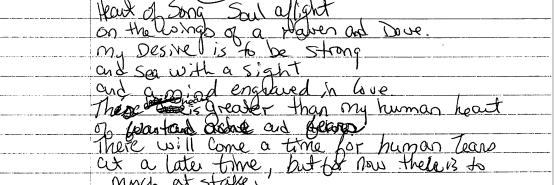 Heart of Song Soul alight
on the wings of a Raven and Dove.
my Desire is to be strong
and sea with a sight
and a mind engraved in love
These is greater than my human heart
of and and
There will come a time for human Tears
at a later time, but for now there is to
much at stake.